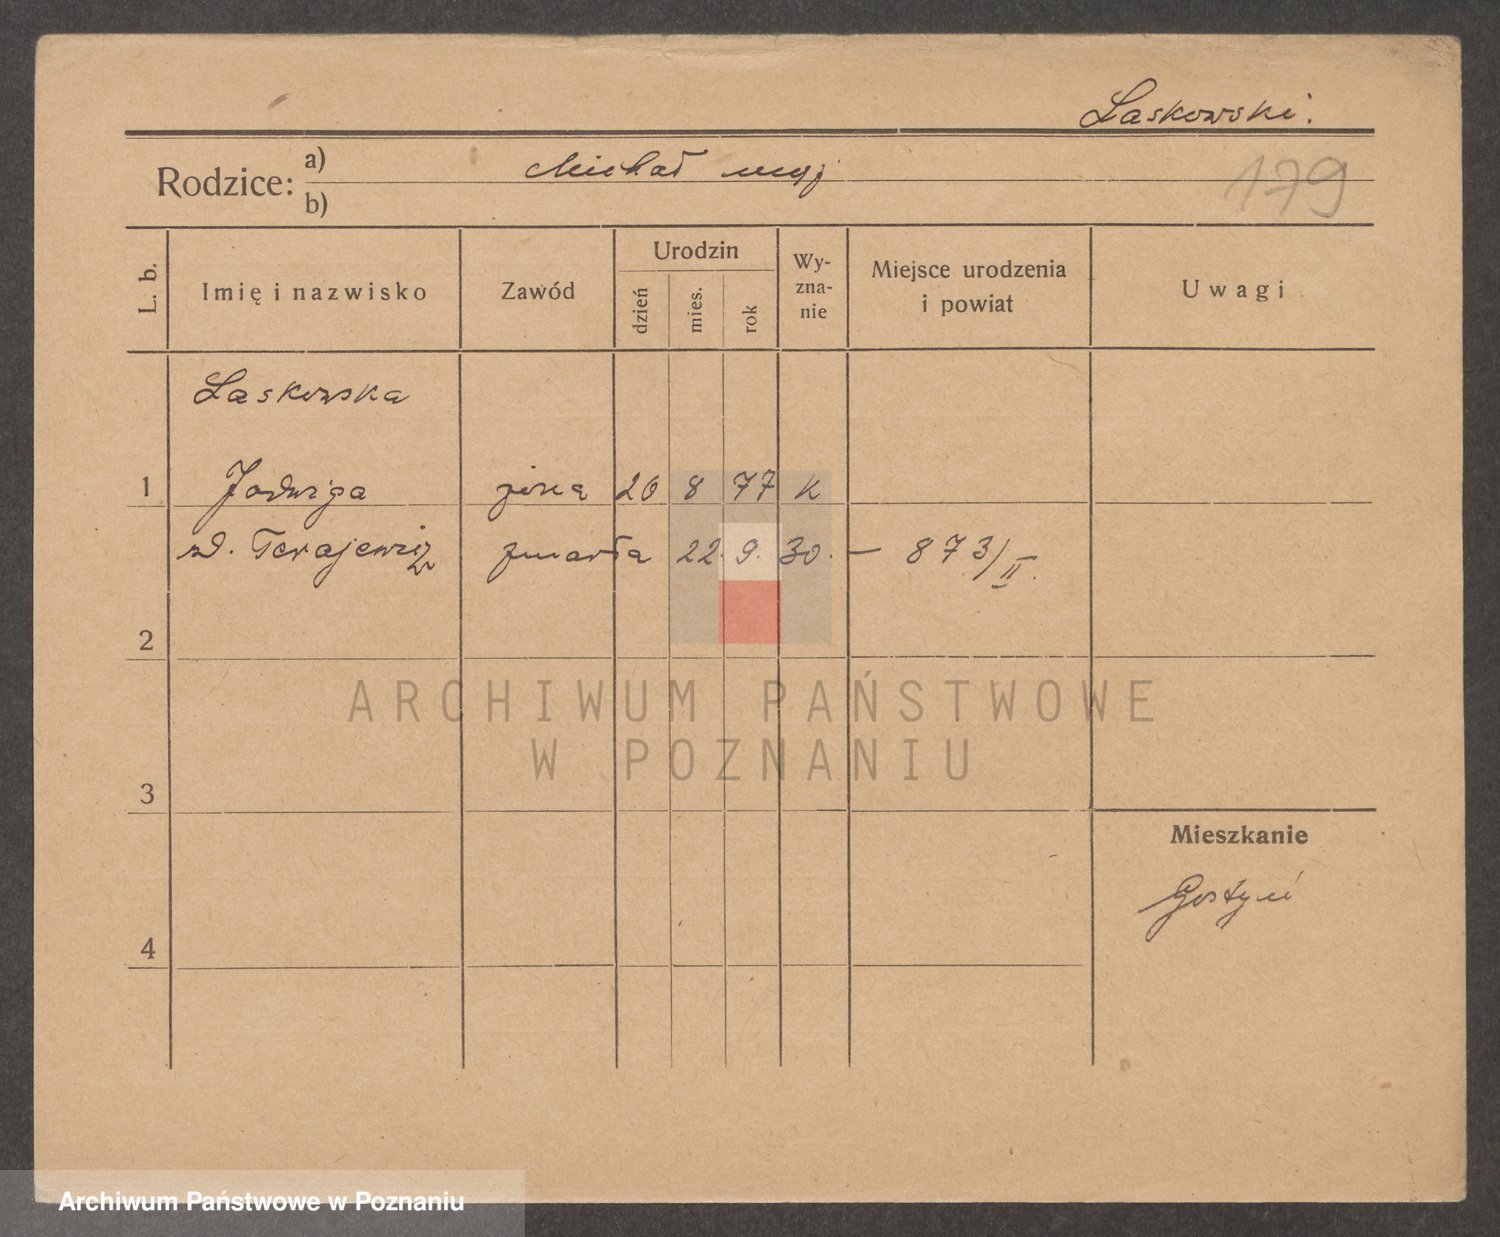 Laskowski.
Rodzice: a) Michał mąż
b)
179
L. b.
Imię i nazwisko
Zawód
Urodzin
dzień
mies.
rok
Wy-
zna-
nie
Miejsce urodzenia
i powiat
Uwagi
Laskowska
1 Jadwiga żona 20 8 77 k
zd. zmarła 22. 9. 30. — 873/II.
2
ARCHIWUM PAŃSTWOWE
W POZNANIU
3
Mieszkanie
Gostyń
4
Archiwum Państwowe w Poznaniu